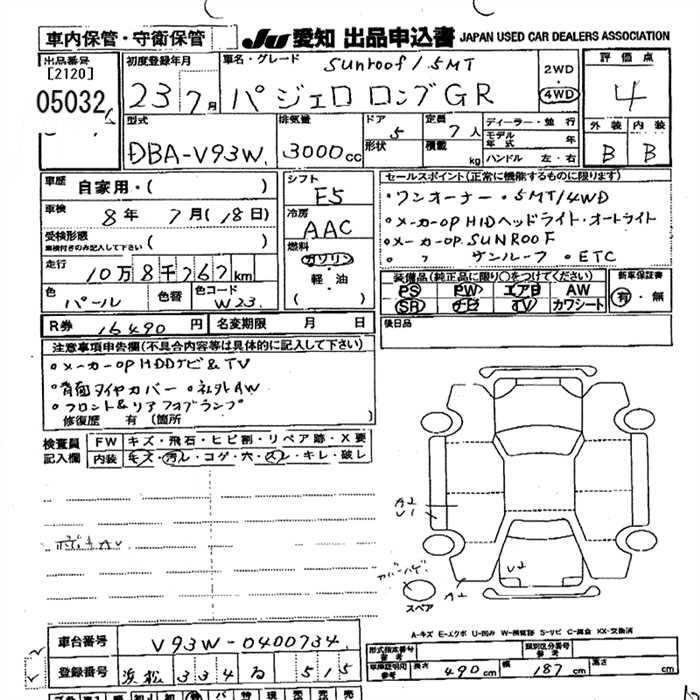 車内保管・守衛保管
JU 愛知 出品申込書 JAPAN USED CAR DEALERS ASSOCIATION
出品番号
[2120]
05032
初度登録年月
23 7月
車名・グレード
sunroof/5MT
パジェロ ロングGR
2WD
4WD
評価点
4
外装 内装
B B
型式
DBA-V93W
排気量
3000cc
ドア 5
形状
定員 7人
積載 kg
ディーラー・並行
モデル年式 年
ハンドル 左・右
車歴 自家用・( )
車検 8年 7月(18日)
受検形態
車検付きのみ記入して下さい ( )
走行 10万8千767km
色 パール 色替 色コード W23
シフト
F5
冷房
AAC
燃料
ガソリン
軽・油
( )
セールスポイント(正常に機能するものに限ります)
・ワンオーナー・5MT/4WD
・メーカーOP HIDヘッドライト・オートライト
・メーカーOP SUNROOF
〃 サンルーフ ・ETC
装備品(純正品に限り○をつけてください)
PS PW エアB AW
SR ナビ TV カワシート
新車保証書
有・無
R券 16490円 名変期限 月 日
後日品
注意事項申告欄(不具合内容等は具体的に記入して下さい)
・メーカーOP HDDナビ&TV
・背面タイヤカバー ・社外AW
・フロント&リアフォグランプ
修復歴 有 〔箇所 〕
検査員記入欄
FW キズ・飛石・ヒビ割・リペア跡・X要
内装 キズ・汚レ・コゲ・穴・スレ・キレ・破レ
A2
U1
U2
A2
スペア
A-キズ E-エクボ U-凹み W-補修跡 S-サビ C-腐食 XX-交換済
車台番号 V93W-0400734
登録番号 浜松 334 る 515
形式指定番号 参考
類別区分番号 参考
車庫証明用 参考 長さ 490cm 幅 187cm 高さ cm